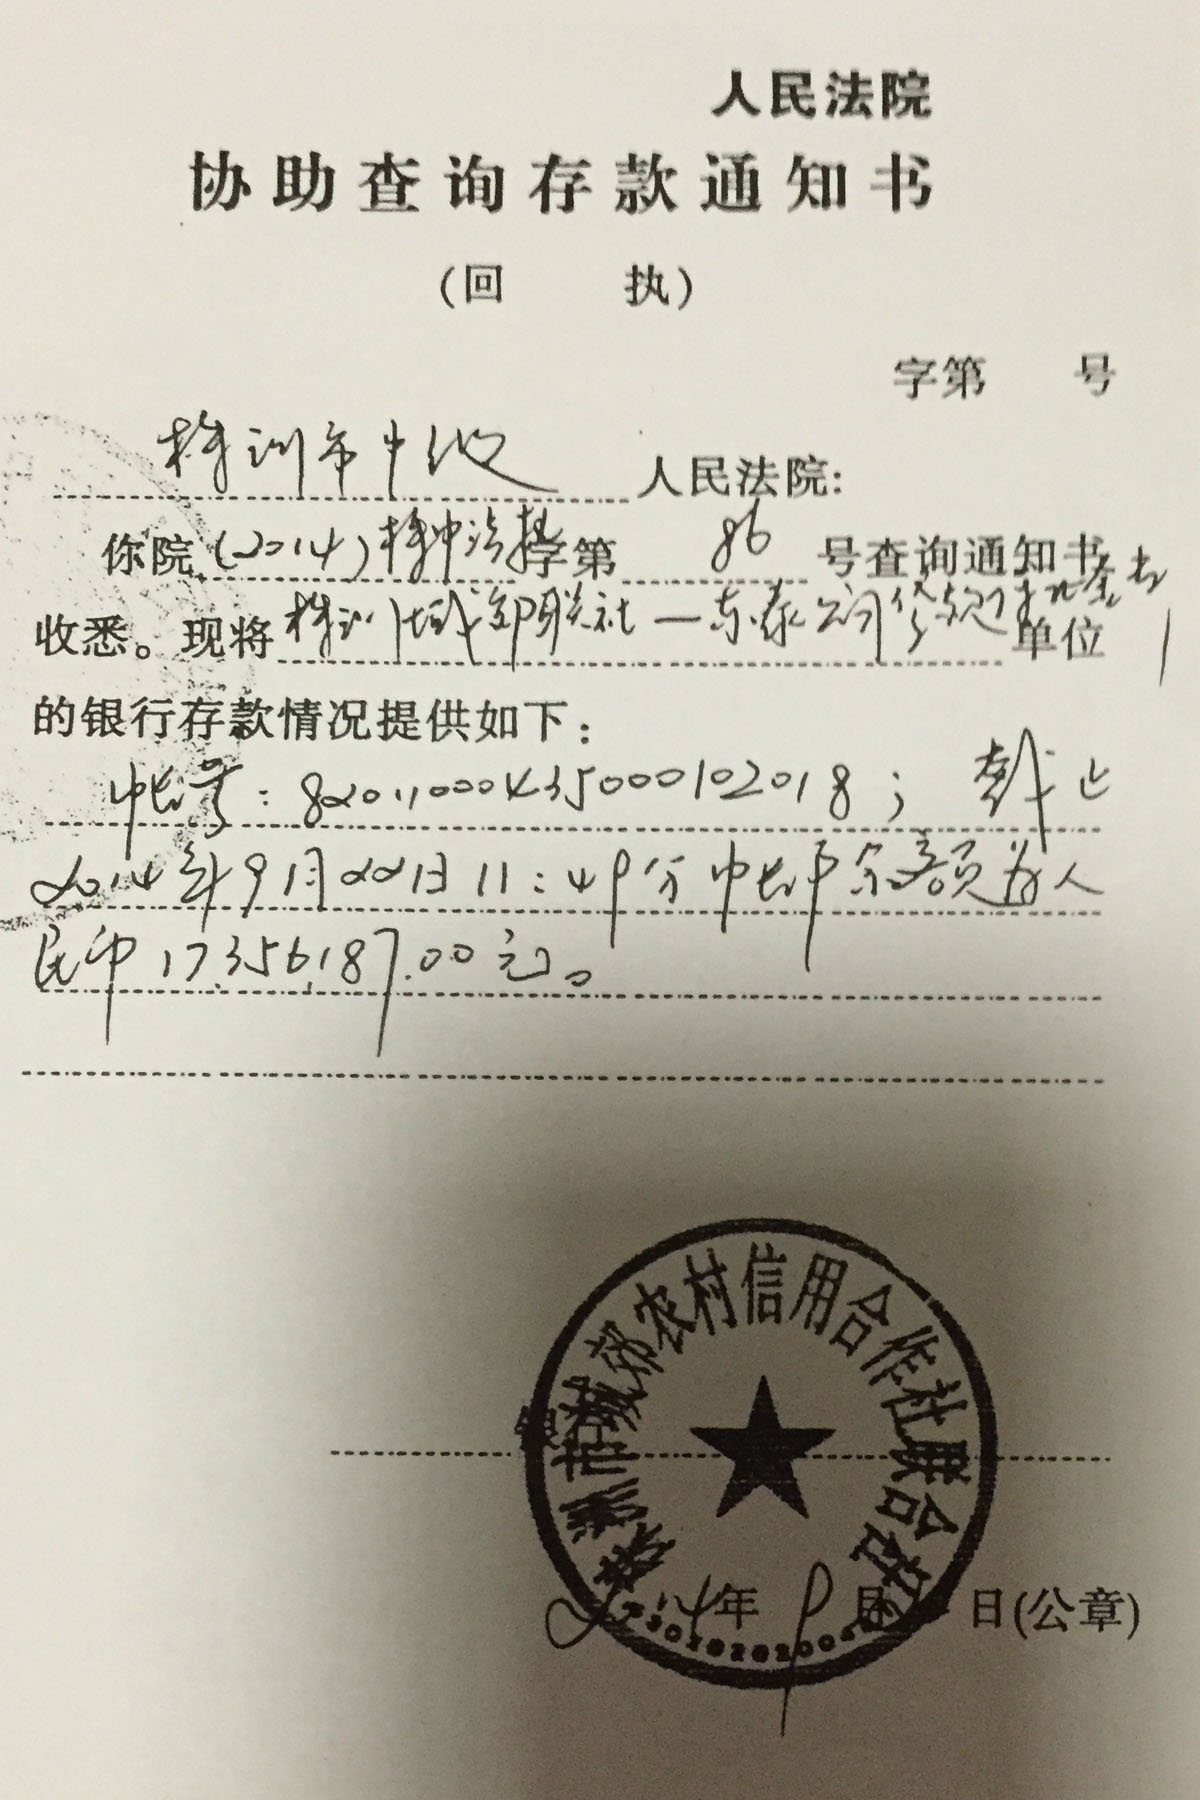 人民法院
协助查询存款通知书
(回 执)
字第 号
株洲市中级 人民法院:
你院(2014)株中法执字第 86 号查询通知书
收悉。现将株洲城郊联社—东泰公司 单位
的银行存款情况提供如下:
帐号:82011000435000102018; 截止
2014年9月22日11:49分帐户余额为人
民币17,356,187.00元。
株洲市城郊农村信用合作社联合社
2014年9月 日(公章)